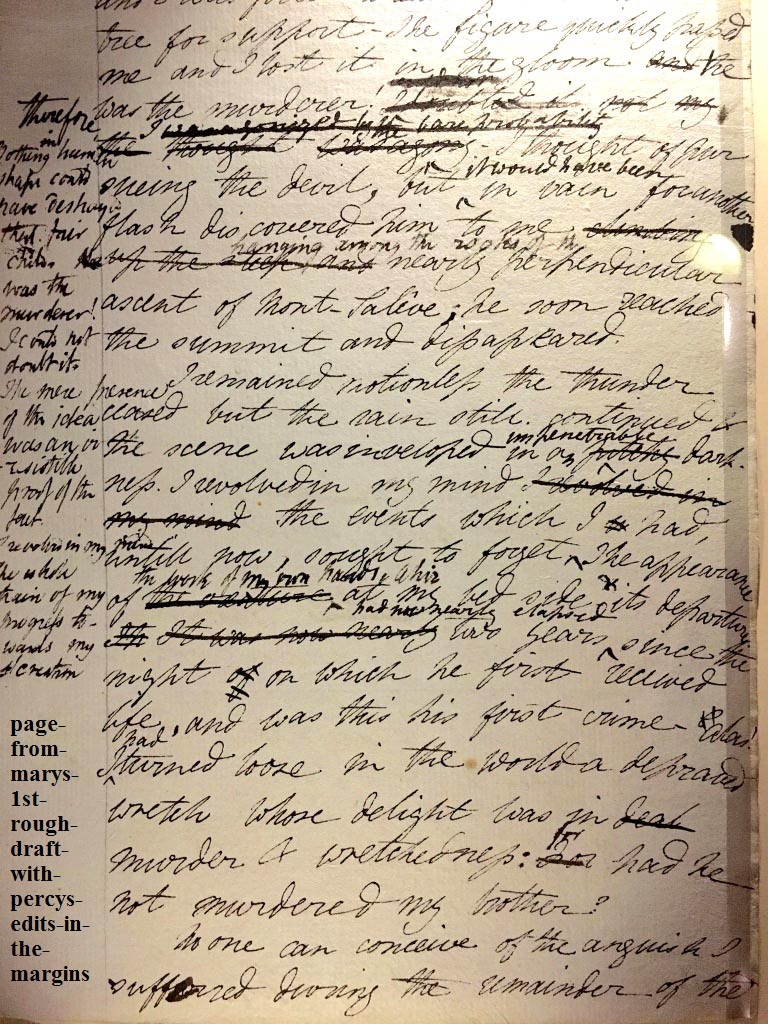 tree for support - The figure quickly passed
me and I lost it in the gloom and he
was the murderer. I doubted it not my
I was agonized by the bare probability
the thought I thought of pur
it would have been
sueing the devil, but in vain for another
flash discovered him to me climbing
hanging among the rocks of the
up the steep and nearly perpendicular
ascent of Mont-Salêve; he soon reached
the summit and disappeared.
I remained motionless the thunder
ceased but the rain still continued &
impenetrable
the scene was inveloped in an dark-
ness. I revolved in my mind I revolved in
my mind the events which I had,
untill now, sought to forget, The appearance
the work of my own hands, alive
of the creature at my bed side its departure
had now nearly elapsed
It was now nearly two years since the
night of on which he first recieved
life, and was this his first crime - Alas!
had
I turned loose in the world a depraved
wretch whose delight was in deal
murder & wretchedness: for had he
not murdered my brother?
No one can conceive of the anguish I
suffered during the remainder of the
therefore
Nothing in human
shape could
have destroyed
that fair
child. He
was the
murderer!
I could not
doubt it.
The mere presence
of the idea
was an irr
resistible
proof of the
fact.
I revolved in my mind
the whole
train of my
progress to-
wards my
creation
page-
from-
marys-
1st-
rough-
draft-
with-
percys-
edits-in-
the-
margins